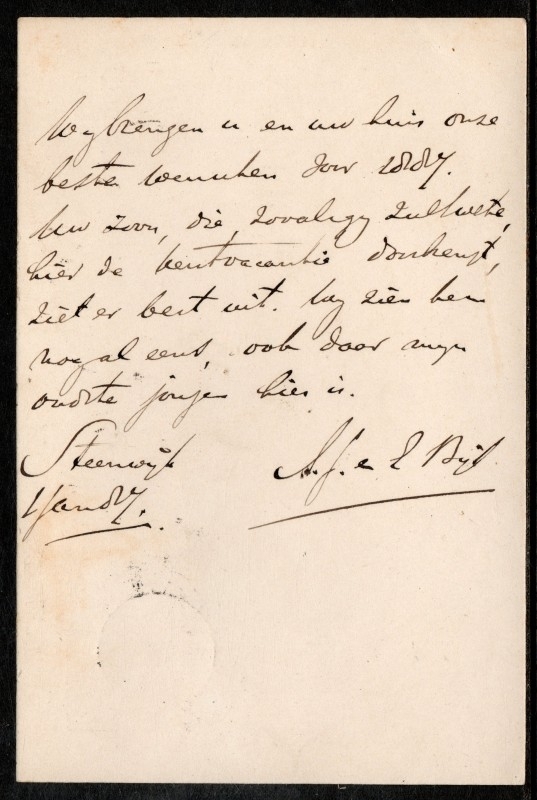 Wy brengen u en uw huis onze
beste wenschen voor 1887.
Uw zoon, die, zooals gy zult weten,
hier de kerstvacantie doorbrengt,
ziet er best uit. Wy zien hem
nogal eens, ook daar myn
oudste jongen hier is.
Steenwijk
1 Jan 87.
A. J. e Bijl